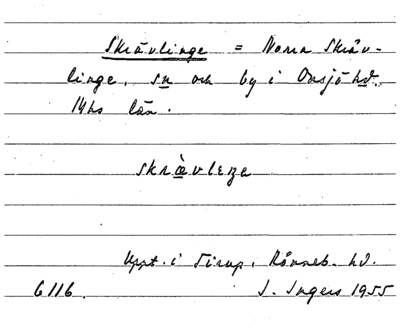 Skrävlinge = Norra Skräv-
linge, sn och by i Onsjö hd.
Mhs län.
skrævleŋe
Uppt. i Tirup, Rönneb. hd.
6116. I. Ingers 1955